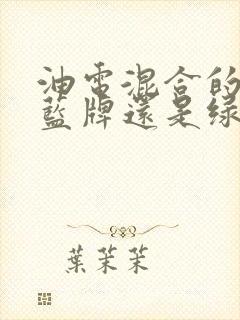 油電混合的
藍牌還是綠
葉茉茉